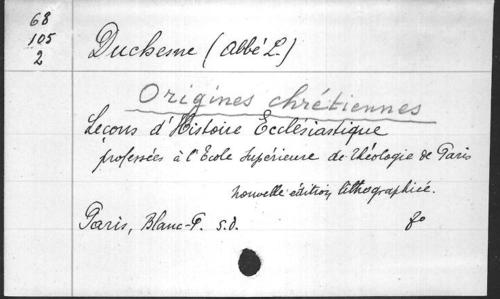 68
105
2
Duchesne (Abbé L.)
Origines chrétiennes
Leçons d'Histoire Ecclésiastique
professées à l'Ecole Supérieure de Théologie de Paris
nouvelle édition lithographiée.
Paris, Blanc-P. s.d. fo